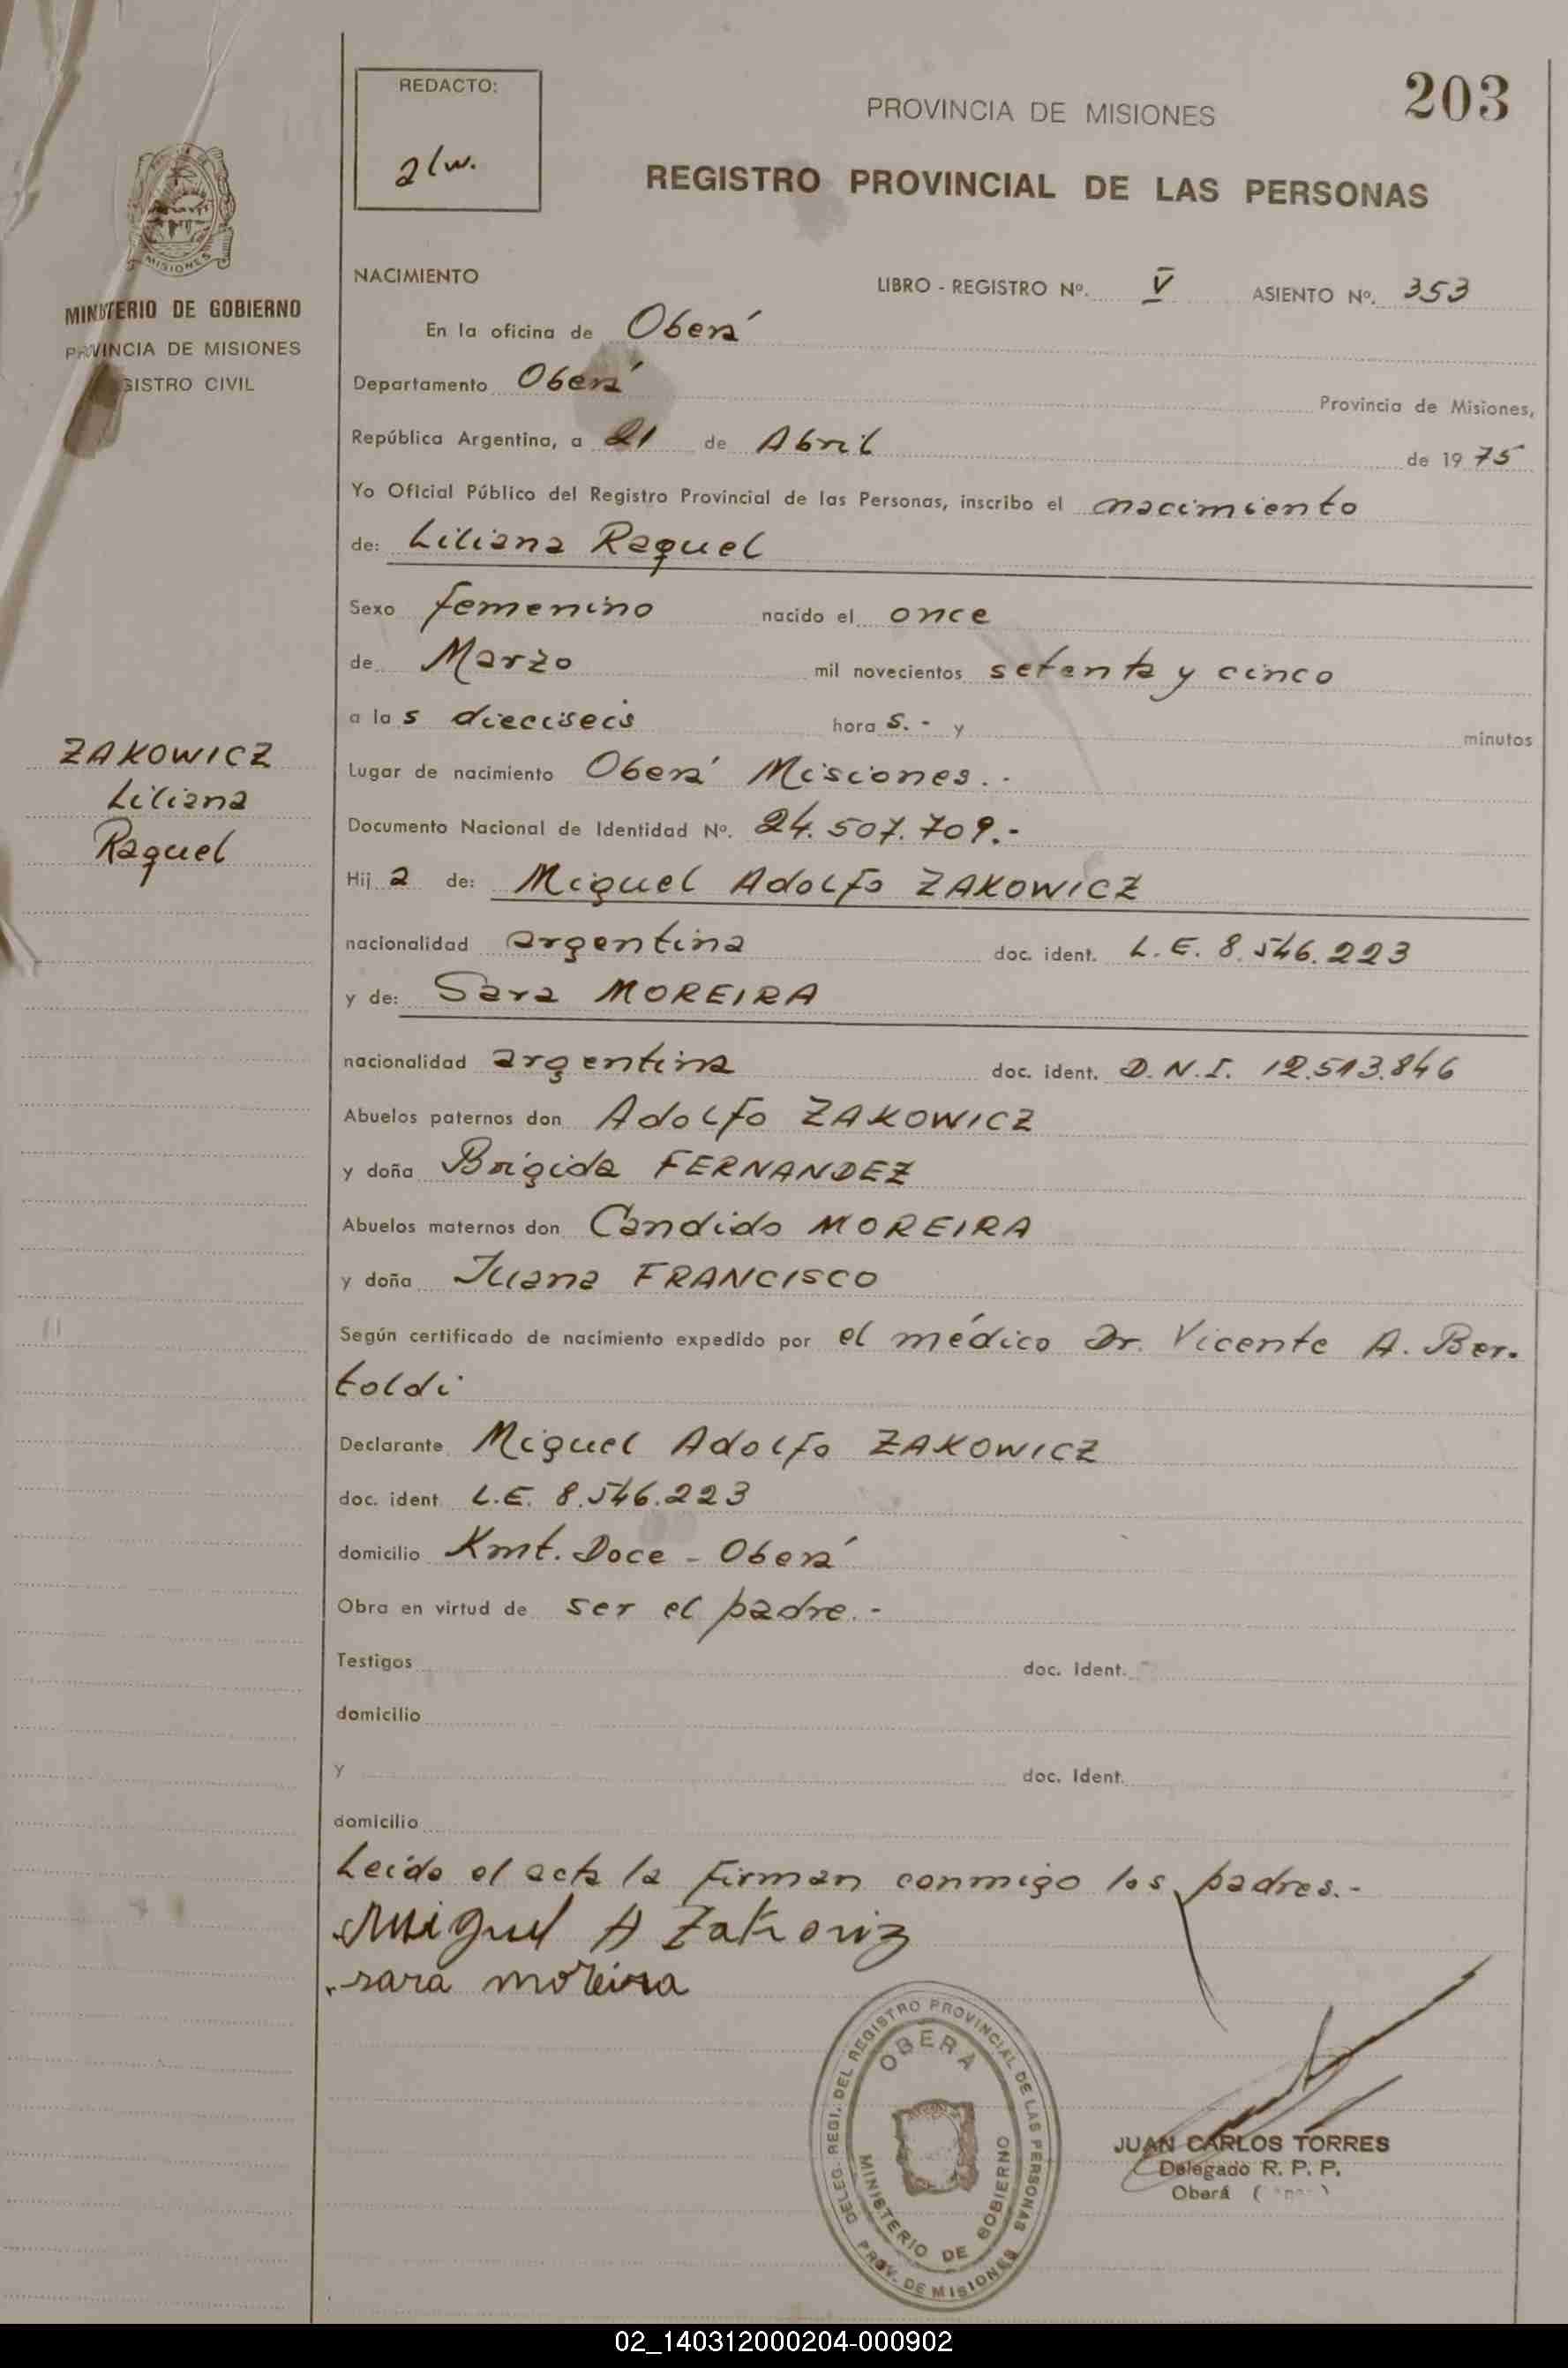 203
REDACTO:
PROVINCIA DE MISIONES
REGISTRO PROVINCIAL DE LAS PERSONAS
MISIONES
MINISTERIO DE GOBIERNO
PROVINCIA DE MISIONES
REGISTRO CIVIL
NACIMIENTO LIBRO - REGISTRO Nº. V ASIENTO Nº. 353
En la oficina de Oberá
Departamento Oberá Provincia de Misiones,
República Argentina, a 21 de Abril de 1975
Yo Oficial Público del Registro Provincial de las Personas, inscribo el nacimiento
de: Liliana Raquel
Sexo femenino nacido el once
de Marzo mil novecientos setenta y cinco
a las dieciseis horas.- y minutos
ZAKOWICZ
Liliana
Raquel
Lugar de nacimiento Oberá Misiones.-
Documento Nacional de Identidad Nº. 24.507.709.-
Hija de: Miguel Adolfo ZAKOWICZ
nacionalidad argentina doc. ident. L.E. 8.546.223
y de: Sara MOREIRA
nacionalidad argentina doc. ident. D.N.I. 12.513.846
Abuelos paternos don Adolfo ZAKOWICZ
y doña Brígida FERNANDEZ
Abuelos maternos don Candido MOREIRA
y doña Juana FRANCISCO
Según certificado de nacimiento expedido por el médico Dr. Vicente A. Ber-
toldi
Declarante Miguel Adolfo ZAKOWICZ
doc. ident L.E. 8.546.223
domicilio Kmt. Doce - Oberá
Obra en virtud de ser el padre.-
Testigos doc. Ident.
domicilio
y doc. Ident.
domicilio
Leida el acta la firman conmigo los padres.-
Miguel A Zakoviz
sara moreira
DELEG. REGI. DEL REGISTRO PROVINCIAL DE LAS PERSONAS
OBERA
MINISTERIO DE GOBIERNO
PROV. DE MISIONES
JUAN CARLOS TORRES
Delegado R. P. P.
Oberá
02_140312000204-000902